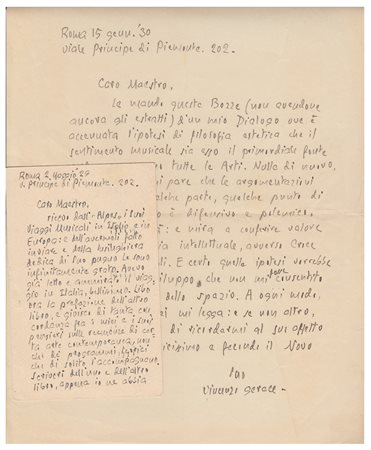 Roma 15 genn. '30
viale Principe di Piemonte. 202.
Caro Maestro,
Le mando queste Bozze (non avendone
ancora gli estratti) d'un mio Dialogo ove è
accennata l'ipotesi di filosofia estetica che il
sentimento musicale sia esso il primordiale fonte
tutte le Arti. Nulla di nuovo,
pare che le argomentazioni
qualche parte, qualche punto di
è difensivo e polemico,
: e mira a conferire valore
intellettuale, avverso Croce
E certo quelle ipotesi vorrebbe
sviluppo che non mi consentito
dello spazio. A ogni modo,
mi legga: e se non altro,
di ricordarmi al suo affetto
e fecondo il Nuovo
Suo
Vincenzo Gerace
Roma 2, Maggio 29
v. Principe di Piemonte. 202.
Caro Maestro,
ricevo dall'Alpes, i suoi
Viaggi Musicali in Italia e in
Europa: e dell'avermeli fatto
inviare e della lusinghiera
dedica di suo pugno le sono
infinitamente grato. Avevo
già letto e ammirato il viag-
gio in Italia, bellissimo libro
ora la prefazione dell'altro
libro, e gioisco di tanta con-
cordanza fra i suoi e i miei
pensieri sulle
ta arte contemporanea, non
che dei programmi
che di solito l'accompagnano.
Scriverò dell'uno e dell'altro
libro, appena io ne abbia